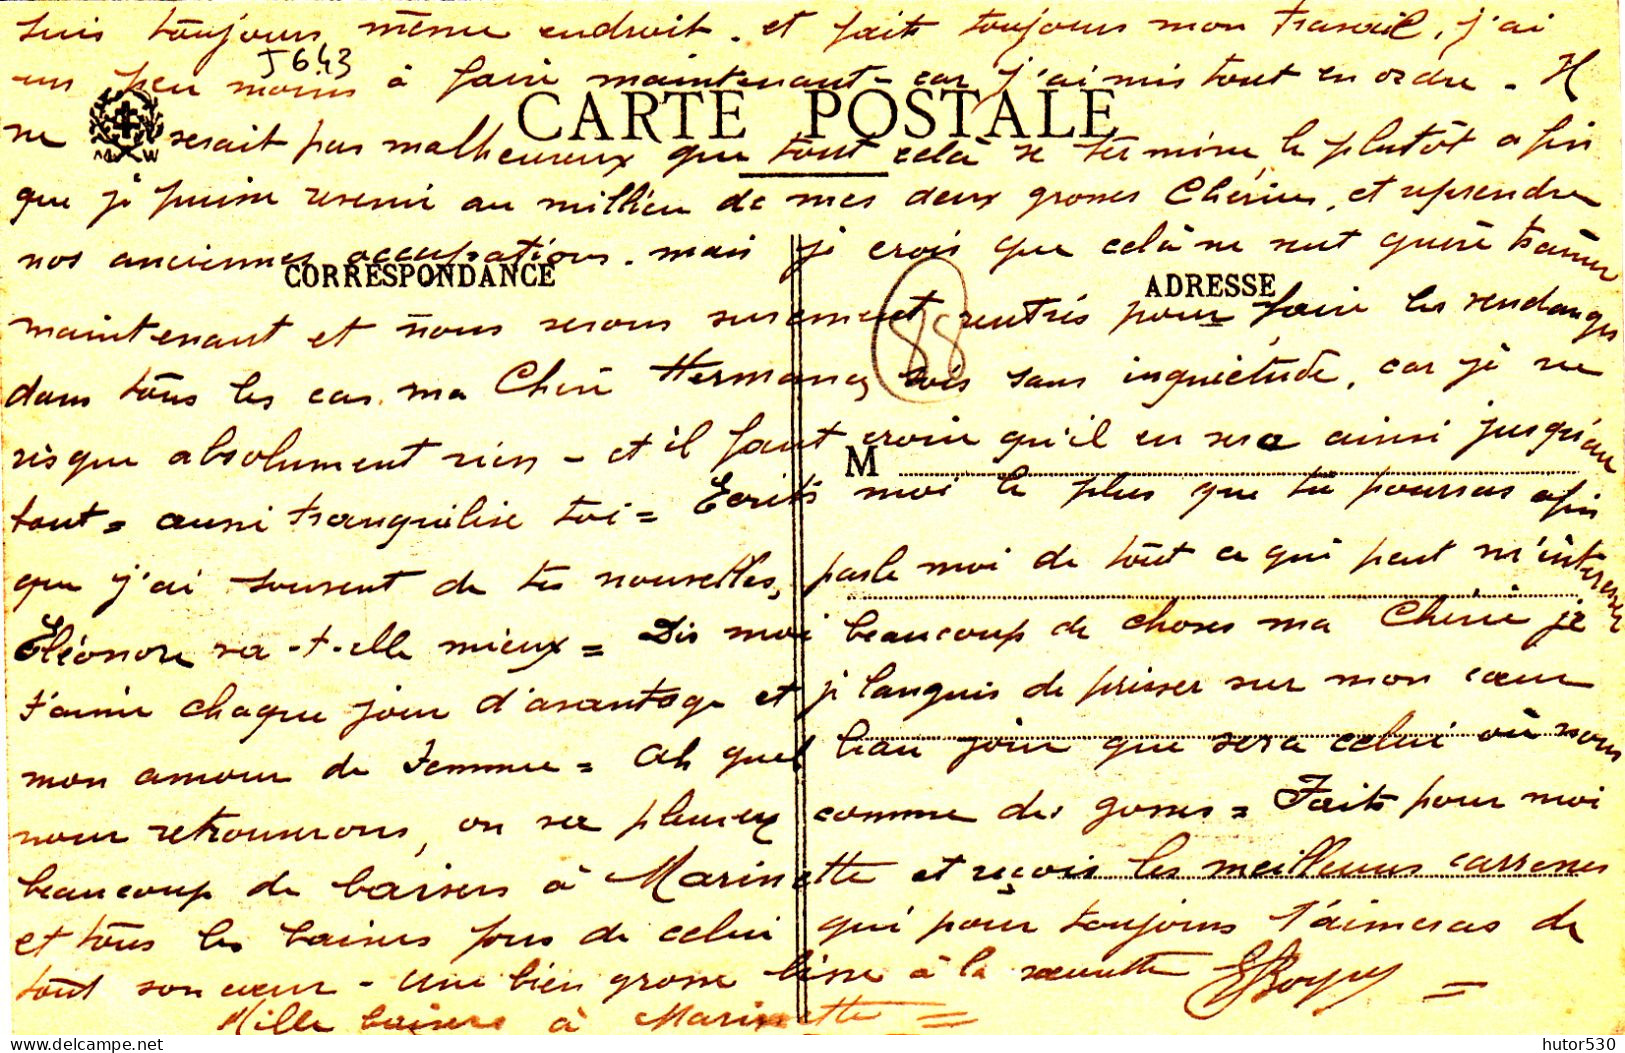 suis toujours même endroit. et fait toujours mon travail, j'ai
J 643
un peu moins à faire maintenant - car j'ai mis tout en ordre - Il
CARTE POSTALE
M W
ne serait pas malheureux que tout celà se termine le plutôt afin
que je puisse revenir au milieu de mes deux grosses Chéries, et reprendre
nos anciennes occupations. mais je crois que celà ne veut guère traîner
CORRESPONDANCE
ADRESSE
maintenant et nous serons surement rentrés pour faire les vendanges
88
dans tous les cas. ma Chérie Hermance, sois sans inquiétude, car je ne
risque absolument rien - et il faut croire qu'il en sera ainsi jusqu'au
M
bout = aussi tranquilise toi = Ecrits moi le plus que tu pourras afin
que j'ai souvent de tes nouvelles, parle moi de tout ce qui peut m'intéresser
Eléonore va-t-elle mieux = Dis moi beaucoup de choses ma Chérie je
t'aime chaque jour d'avantage et je languis de presser sur mon cœur
mon amour de Femme = Ah quel beau jour que sera celui où nous
nous retrouverons, on va pleurer comme des gosses = Faits pour moi
beaucoup de baisers à Marinette et reçois les meilleures carresses
et tous les baisers fous de celui qui pour toujours t'aimeras de
tout son cœur - Une bien grosse bise à la sœurette
Mille baisers à Marinette =
hutor530